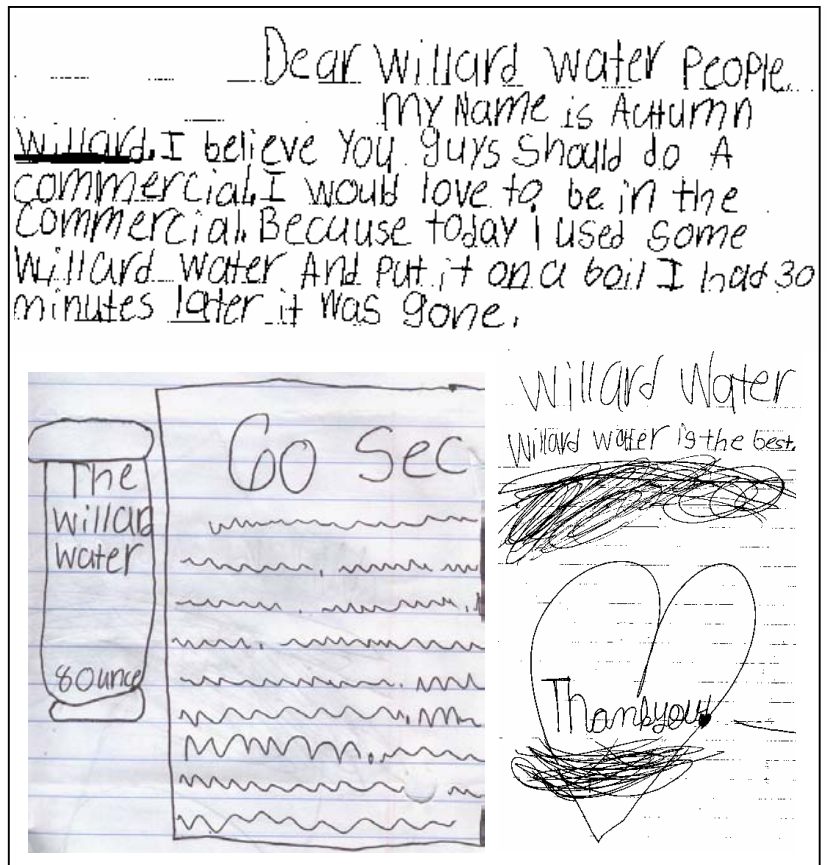 Dear Willard Water People
my Name is Autumn
Willard. I believe You guys Should do A
commercial. I would love to be in the
Commercial. Because today I used some
Willard water And put it on a boil I had 30
minutes later it was gone.
The
willard
water
8ounce
60 Sec
Willard Water
Willard water is the best.
Thankyou!